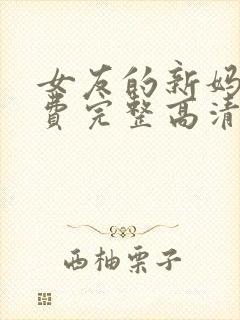 女友的新妈
费完整高清
西柚栗子